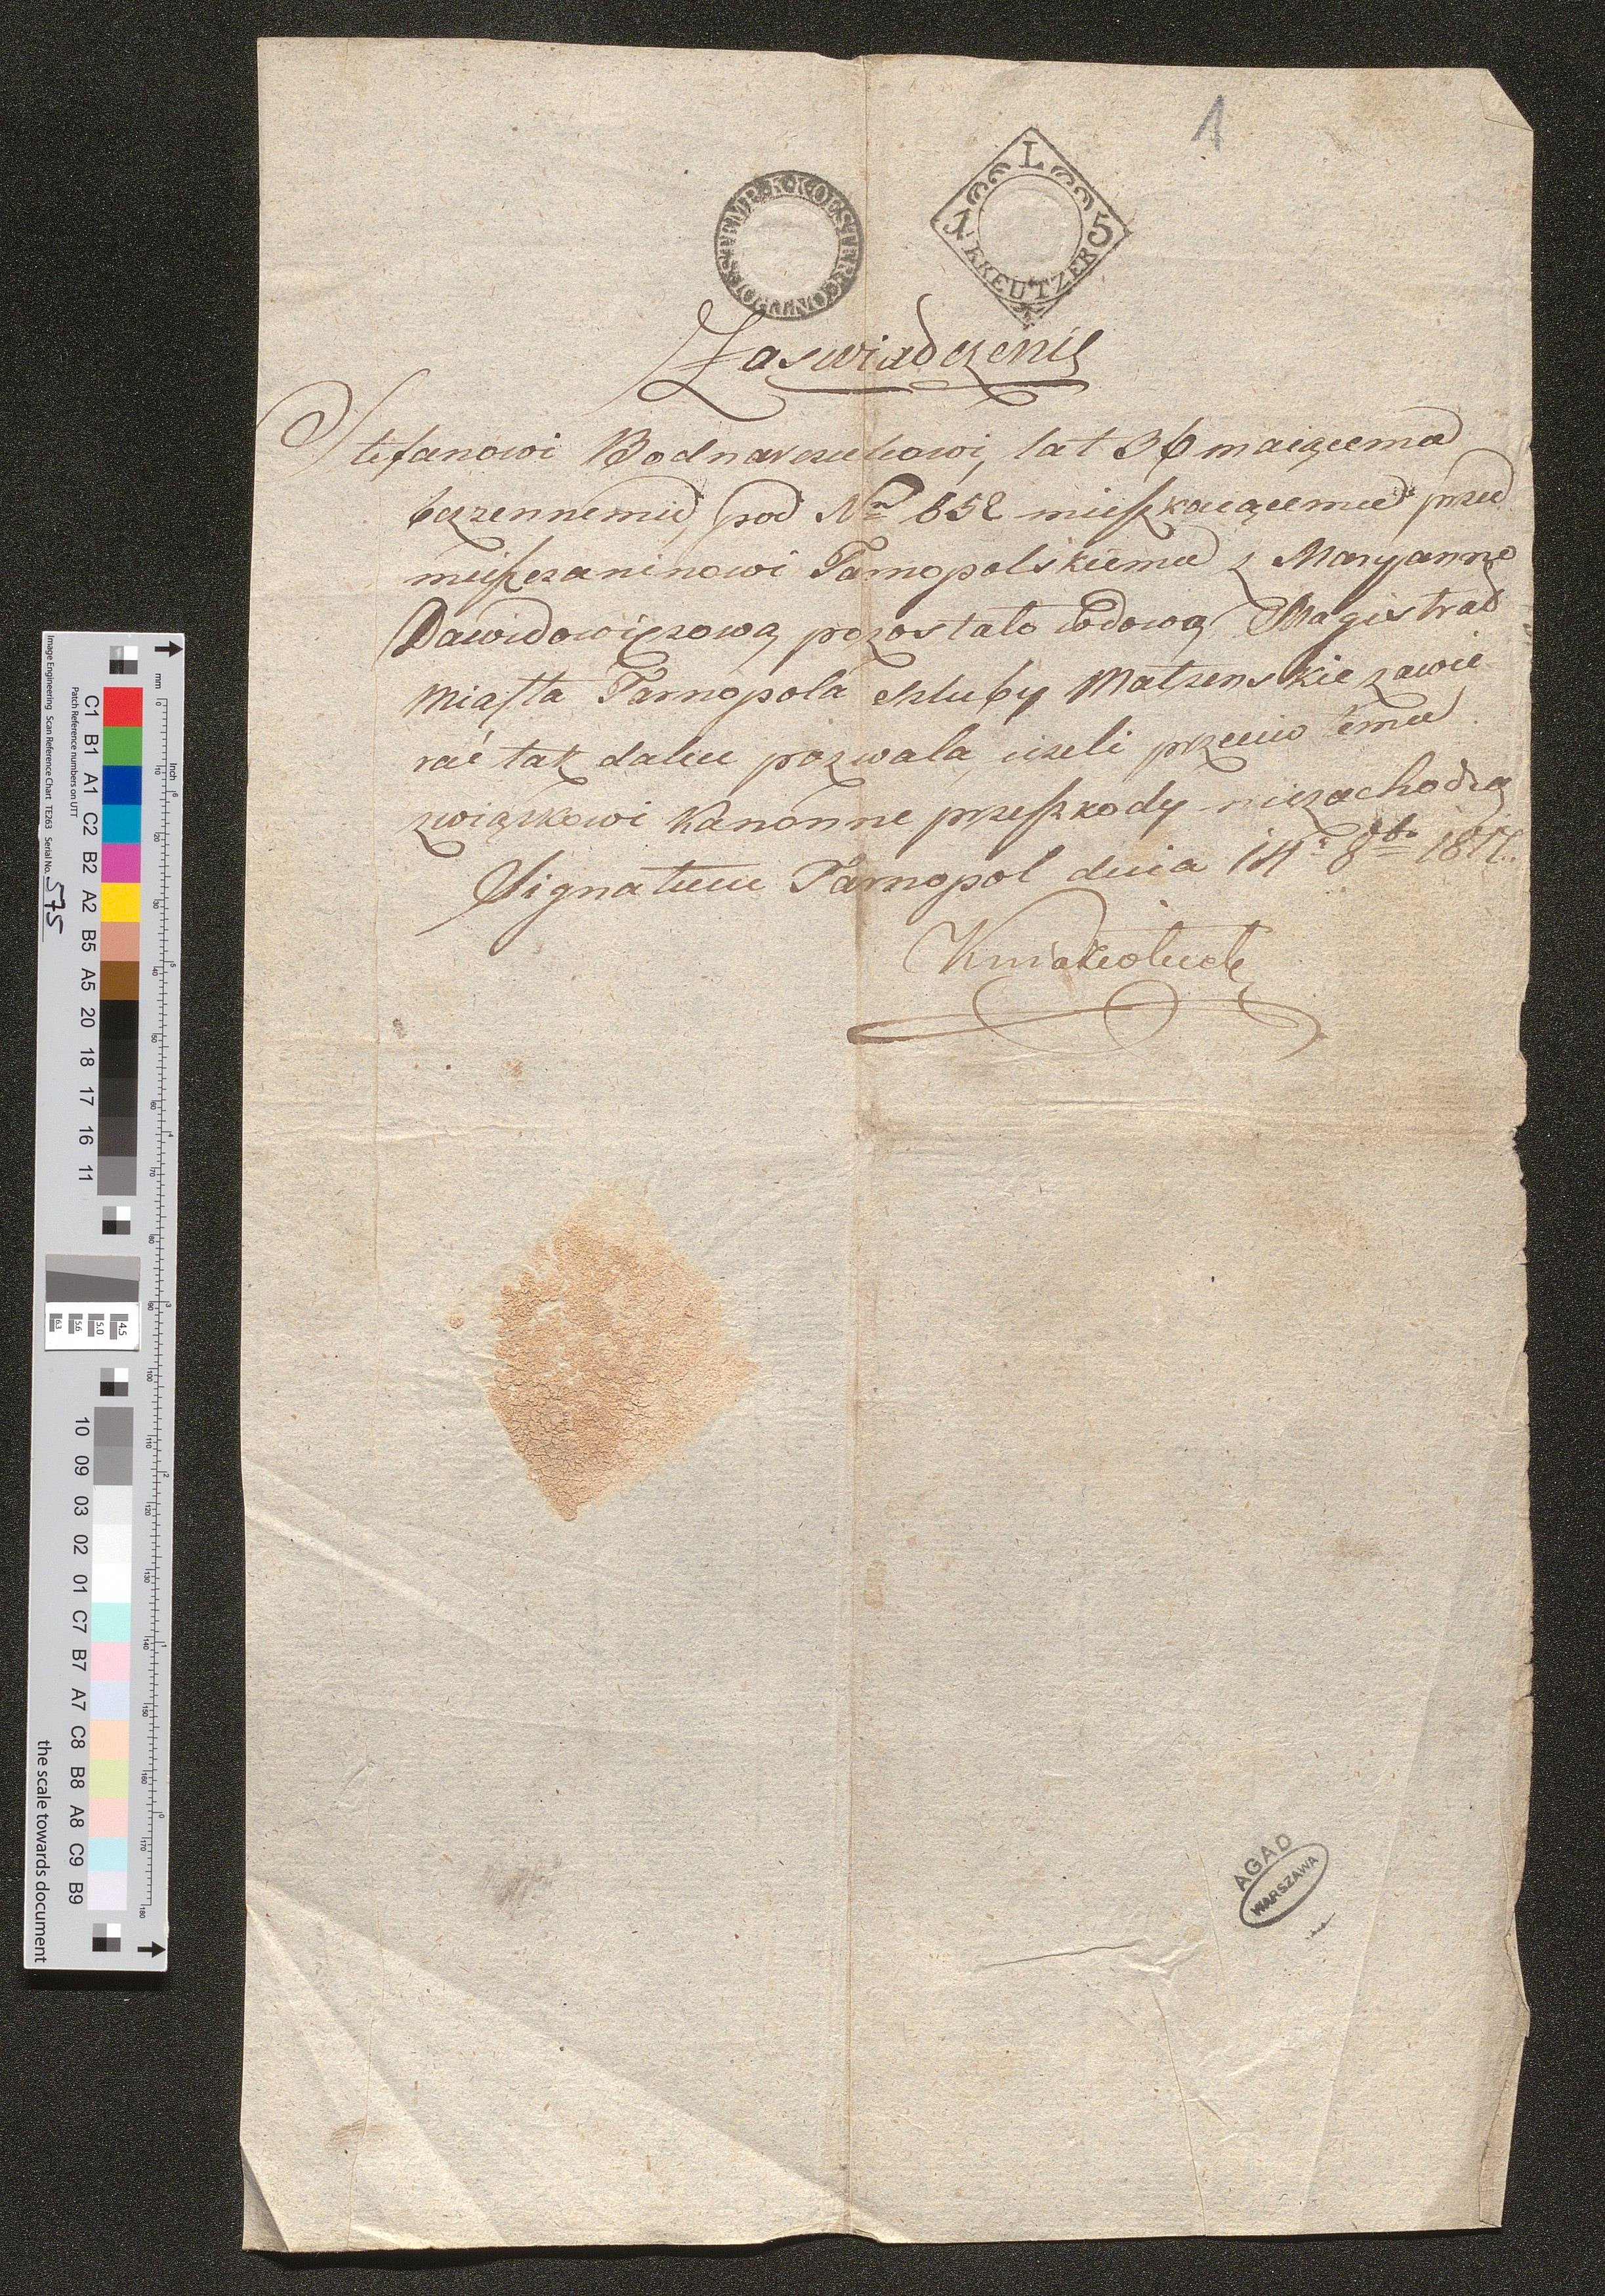 1
STEMP·K·K·OESTER·CONTROL
L
1 5
KREUTZER
Zaswiadczenie
Stefanowi Bodnarczukowi, lat 36 maiącemu
bezzennemu, pod Nro 852 mieszkaiącemu przed
mieszczaninowi Tarnopolskiemu z Maryanną
Dawidowiczową pozostało wdową Magistrad
Miasta Tarnopola szluby Malzenskie zawie
rać tak dalece pozwala, iezeli przeciw temu
związkowi kanonne przeszkody niezachodzą
Signatum Tarnopol dnia 14 8br
AGAD
WARSZAWA
Image Engineering Scan Reference Chart TE263 Serial No. 575
Patch Reference numbers on UTT
C1 B1 A1 C2 B2 A2 B5 A5 20 18 17 16 11
10 09 03 02 01 C7 B7 A7 C8 B8 A8 C9 B9
the scale towards document
mm
inch
4.5
5.0
5.6
6.3